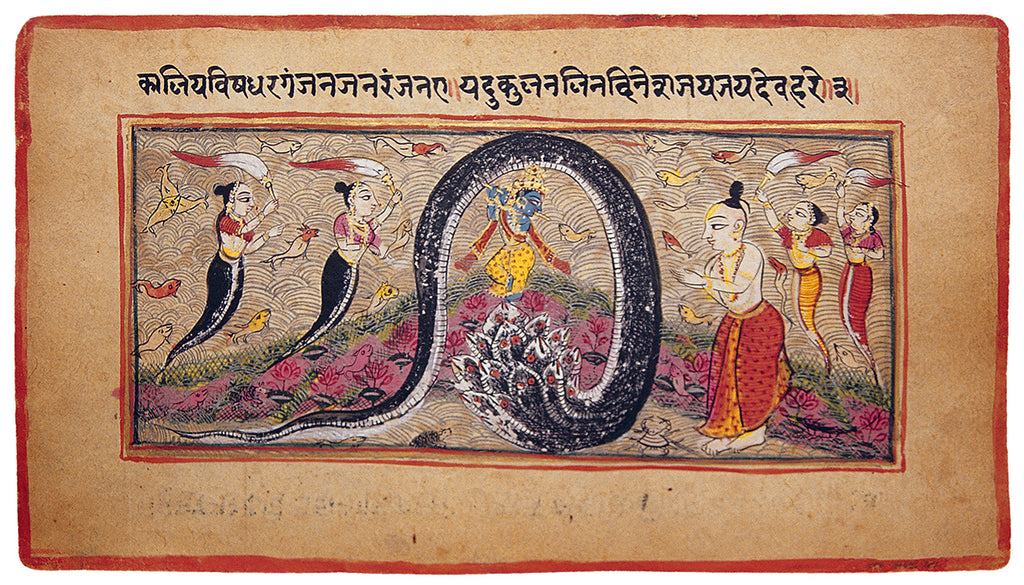 कालियविषधरगंजनजनरंजनए॥यदुकुलनलिनदिनेशजयजयदेवहरे॥३॥